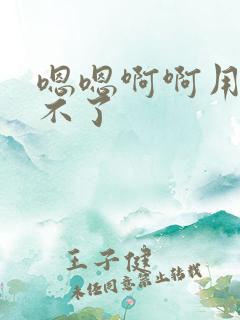 嗯嗯啊啊用
不了
王子健
未经同意禁止转载